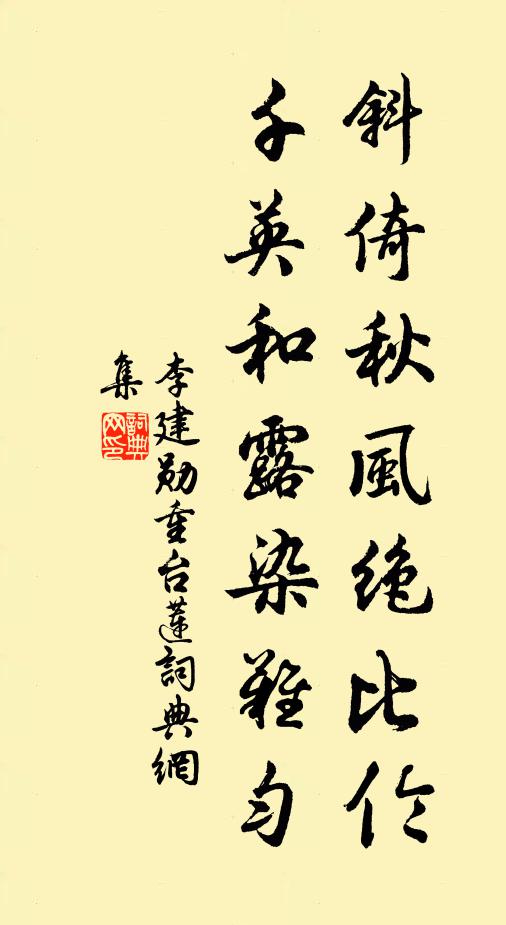 斜倚秋風絶比倫
千英和露染難勻
李建勛重台蓮詞典網
集
詞典
网印